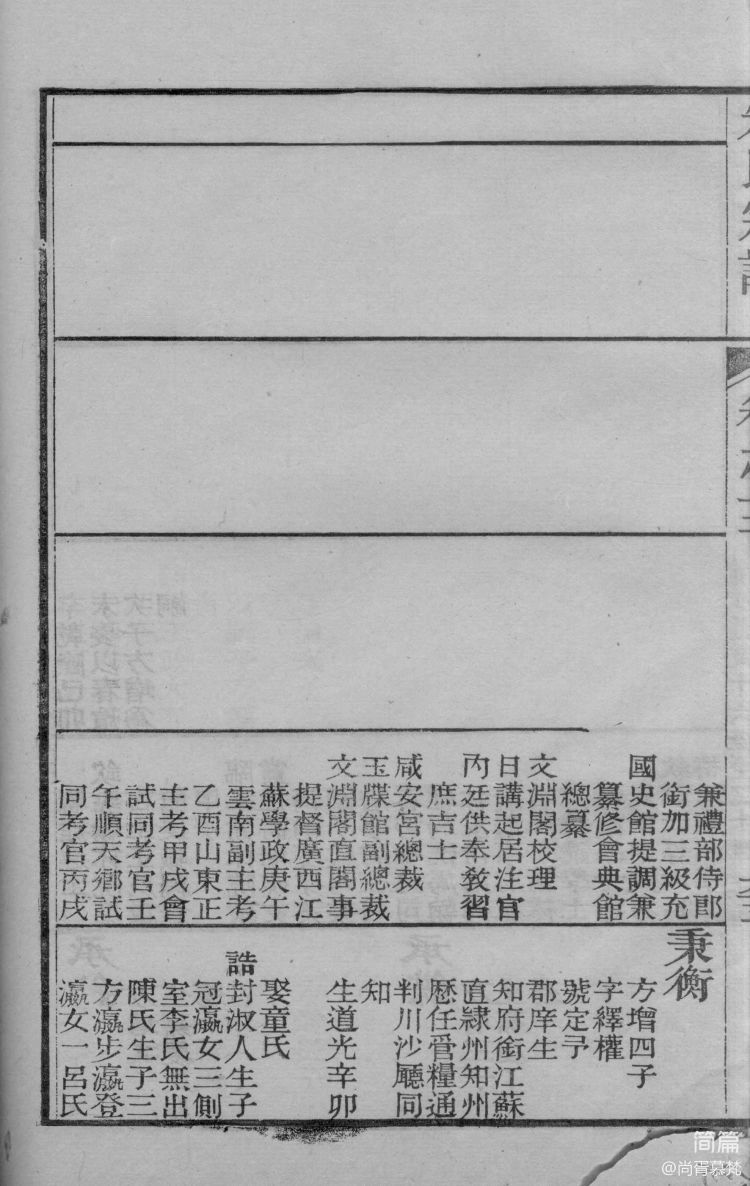 兼禮部侍郎
銜加三級充
國史館提調兼
纂修會典館
總纂
文淵閣校理
日講起居注官
內廷供奉教習
庶吉士
咸安宮總裁
玉牒館副總裁
文淵閣直閣事
提督廣西江
蘇學政庚午
雲南副主考
乙酉山東正
主考甲戌會
試同考官壬
午順天鄉試
同考官丙戌
秉衡
方增四子
字繹權
號定予
郡庠生
知府銜江蘇
直隸州知州
歷任管糧通
判川沙廳同
知
生道光辛卯
娶童氏
誥封淑人生子
冠瀛女三側
室李氏無出
陳氏生子三
方瀛步瀛登
瀛女一呂氏
简篇
@尚胥慕梵